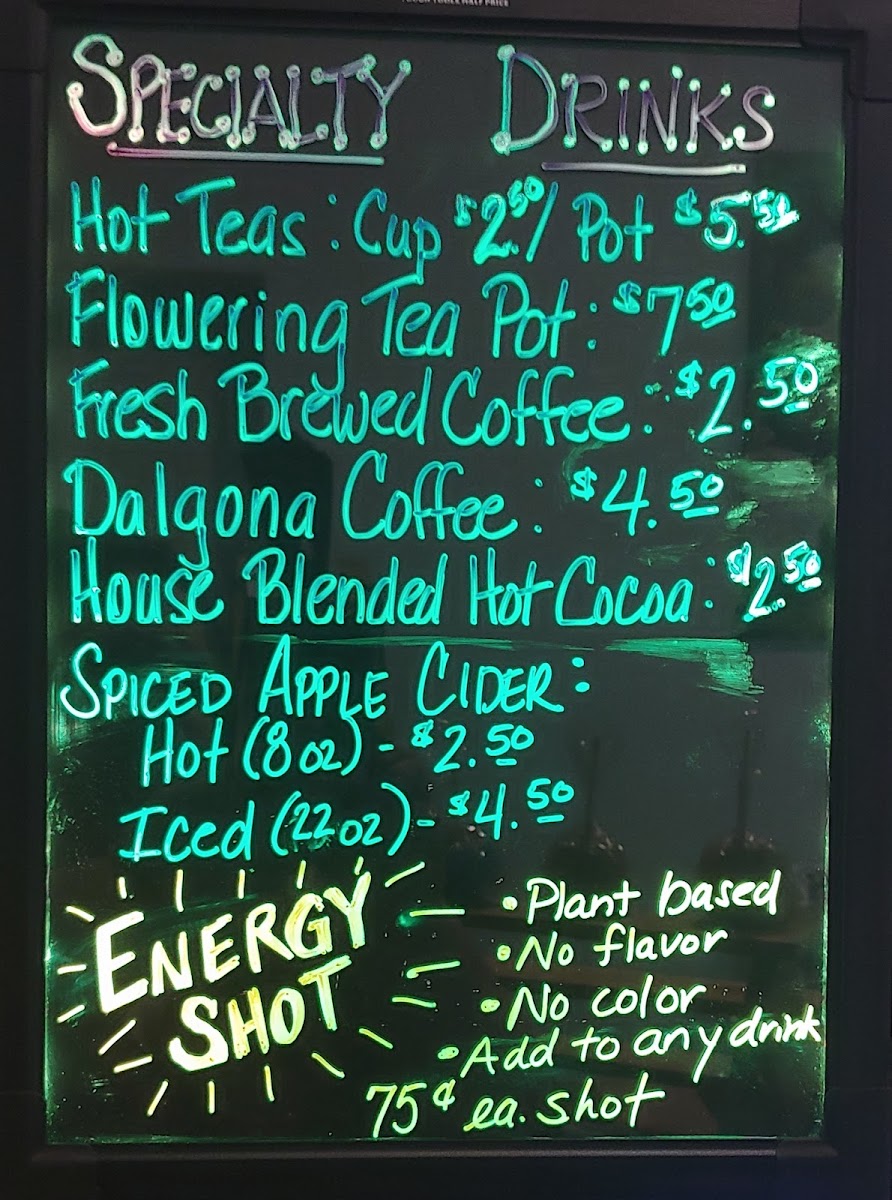 SPECIALTY DRINKS
Hot Teas: Cup $2.50/ Pot $5.50
Flowering Tea Pot: $7 50
Fresh Brewed Coffee: $2.50
Dalgona Coffee: $4.50
House Blended Hot Cocoa: $2.50
SPICED APPLE CIDER:
Hot (8 oz) - $2.50
Iced (22 oz) - $4.50
ENERGY
SHOT
• Plant based
• No flavor
• No color
• Add to any drink
75¢ ea. shot